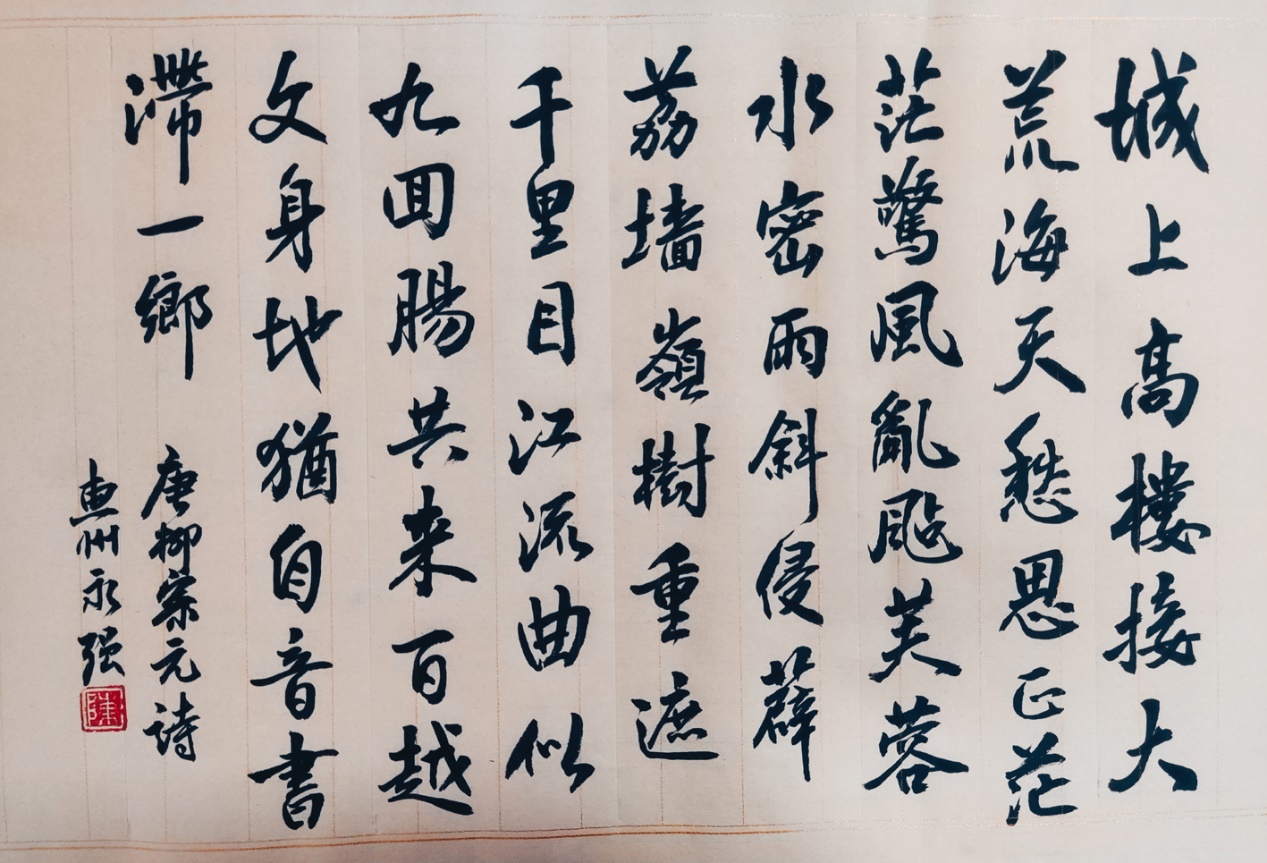 城上高樓接大
荒海天愁思正茫
茫驚風亂颭芙蓉
水密雨斜侵薜
荔墙嶺樹重遮
千里目江流曲似
九回腸共来百越
文身地猶自音書
滯一鄉
唐柳宗元詩
惠州永强
陳